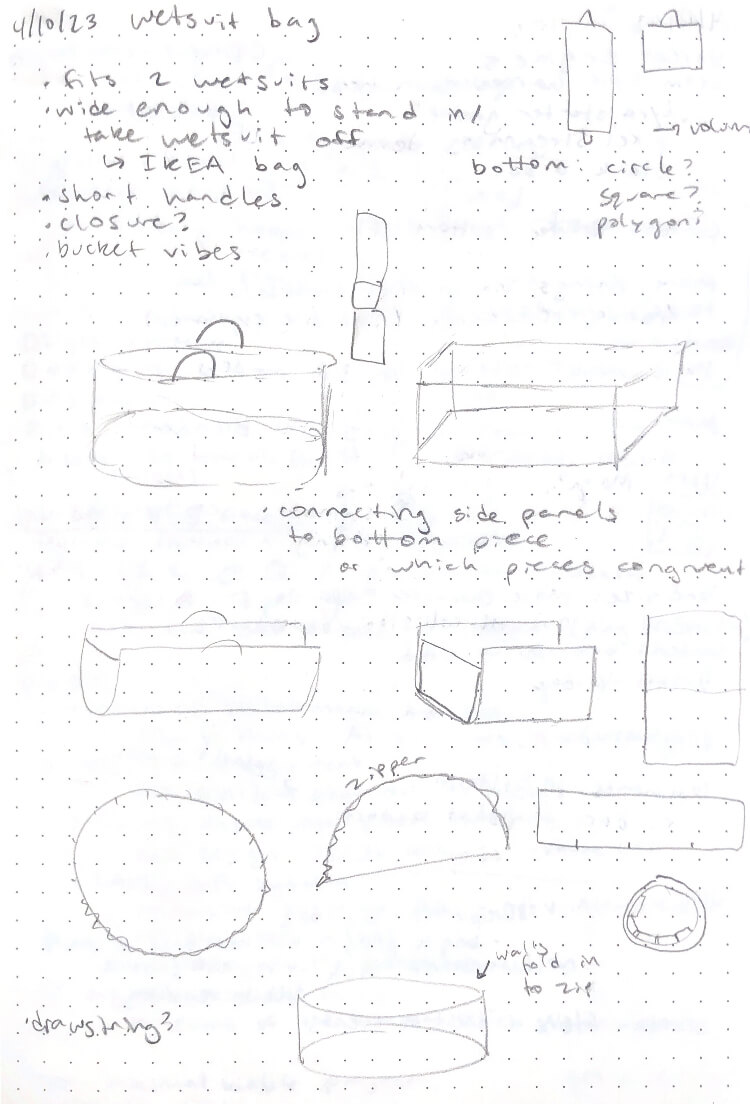 4/10/23 wetsuit bag
• fits 2 wetsuits
• wide enough to stand in/
take wetsuit off
↳ IKEA bag
• short handles
• closure?
• bucket vibes
→ volum
bottom: circle?
square?
polygon?
• connecting side panels
to bottom piece
or which pieces congruent
zipper
walls
fold in
to zip
• drawstring?